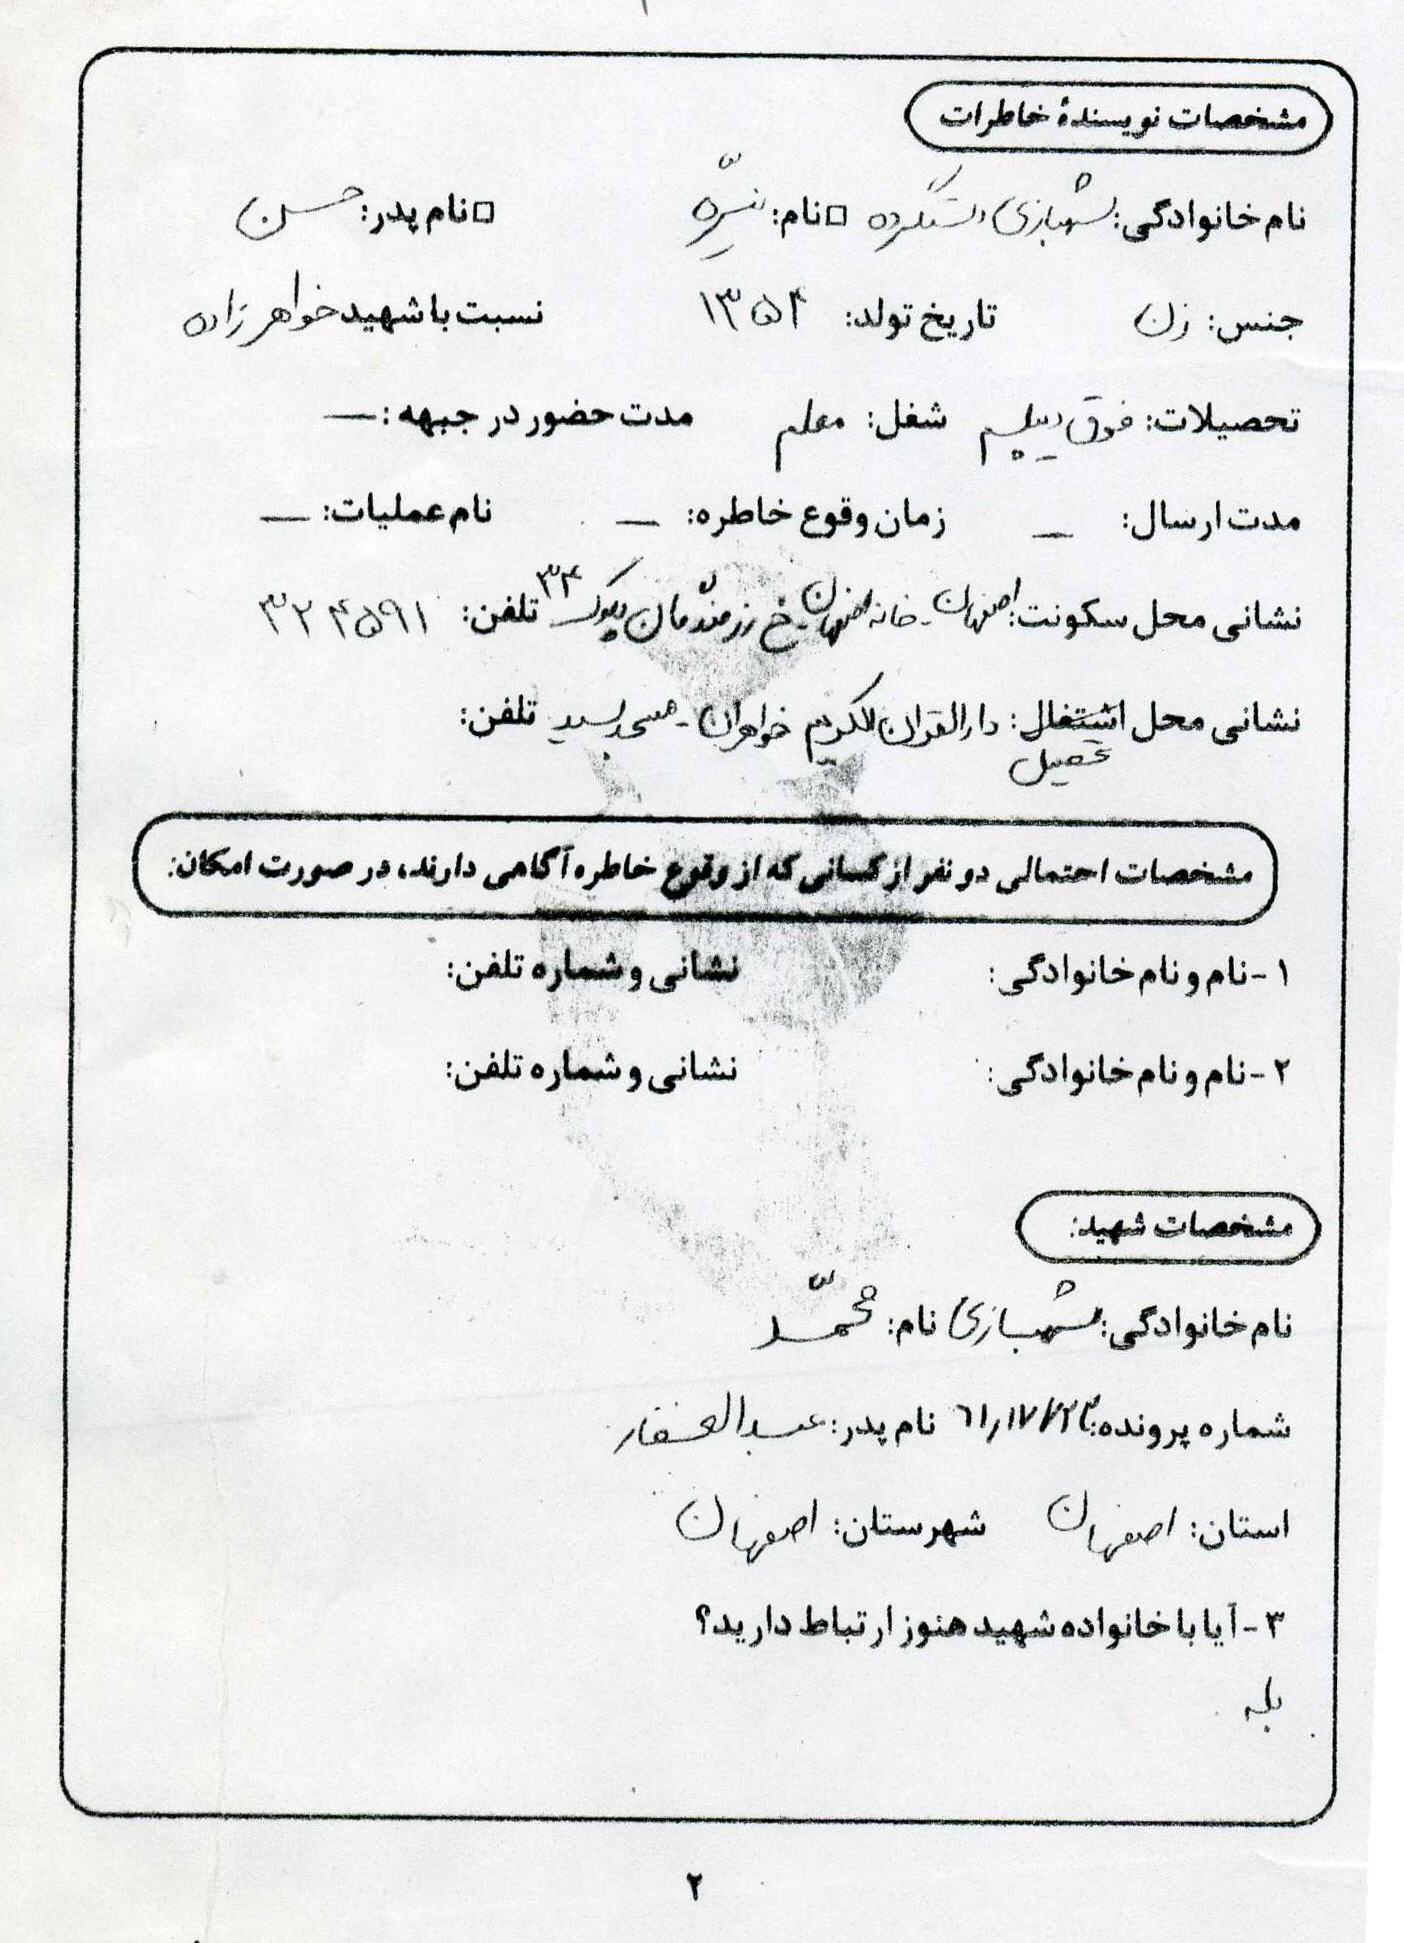 مشخصات نویسندهٔ خاطرات
نام خانوادگی: شهبازی دستگرده □نام: نیّره □نام پدر: حسن
جنس: زن تاریخ تولد: ۱۳۵۴ نسبت با شهید خواهرزاده
تحصیلات: فوق دیپلم شغل: معلم مدت حضور در جبهه: —
مدت ارسال: — زمان وقوع خاطره: — نام عملیات: —
نشانی محل سکونت: اصفهان - خانه اصفهان - خ رزمندگان پلاک ۳۴ تلفن: ۳۲۴۵۹۱
نشانی محل اشتغال: دارالقران الکریم خواهران - مسجد سید تلفن:
تحصیل
مشخصات احتمالی دو نفر از کسانی که از وقوع خاطره آگاهی دارند، در صورت امکان:
۱-نام و نام خانوادگی: نشانی و شماره تلفن:
۲-نام و نام خانوادگی: نشانی و شماره تلفن:
مشخصات شهید:
نام خانوادگی: شهبازی نام: محمّد
شماره پرونده: نام پدر: عبدالغفار
استان: اصفهان شهرستان: اصفهان
۳-آیا با خانواده شهید هنوز ارتباط دارید؟
بله
۲